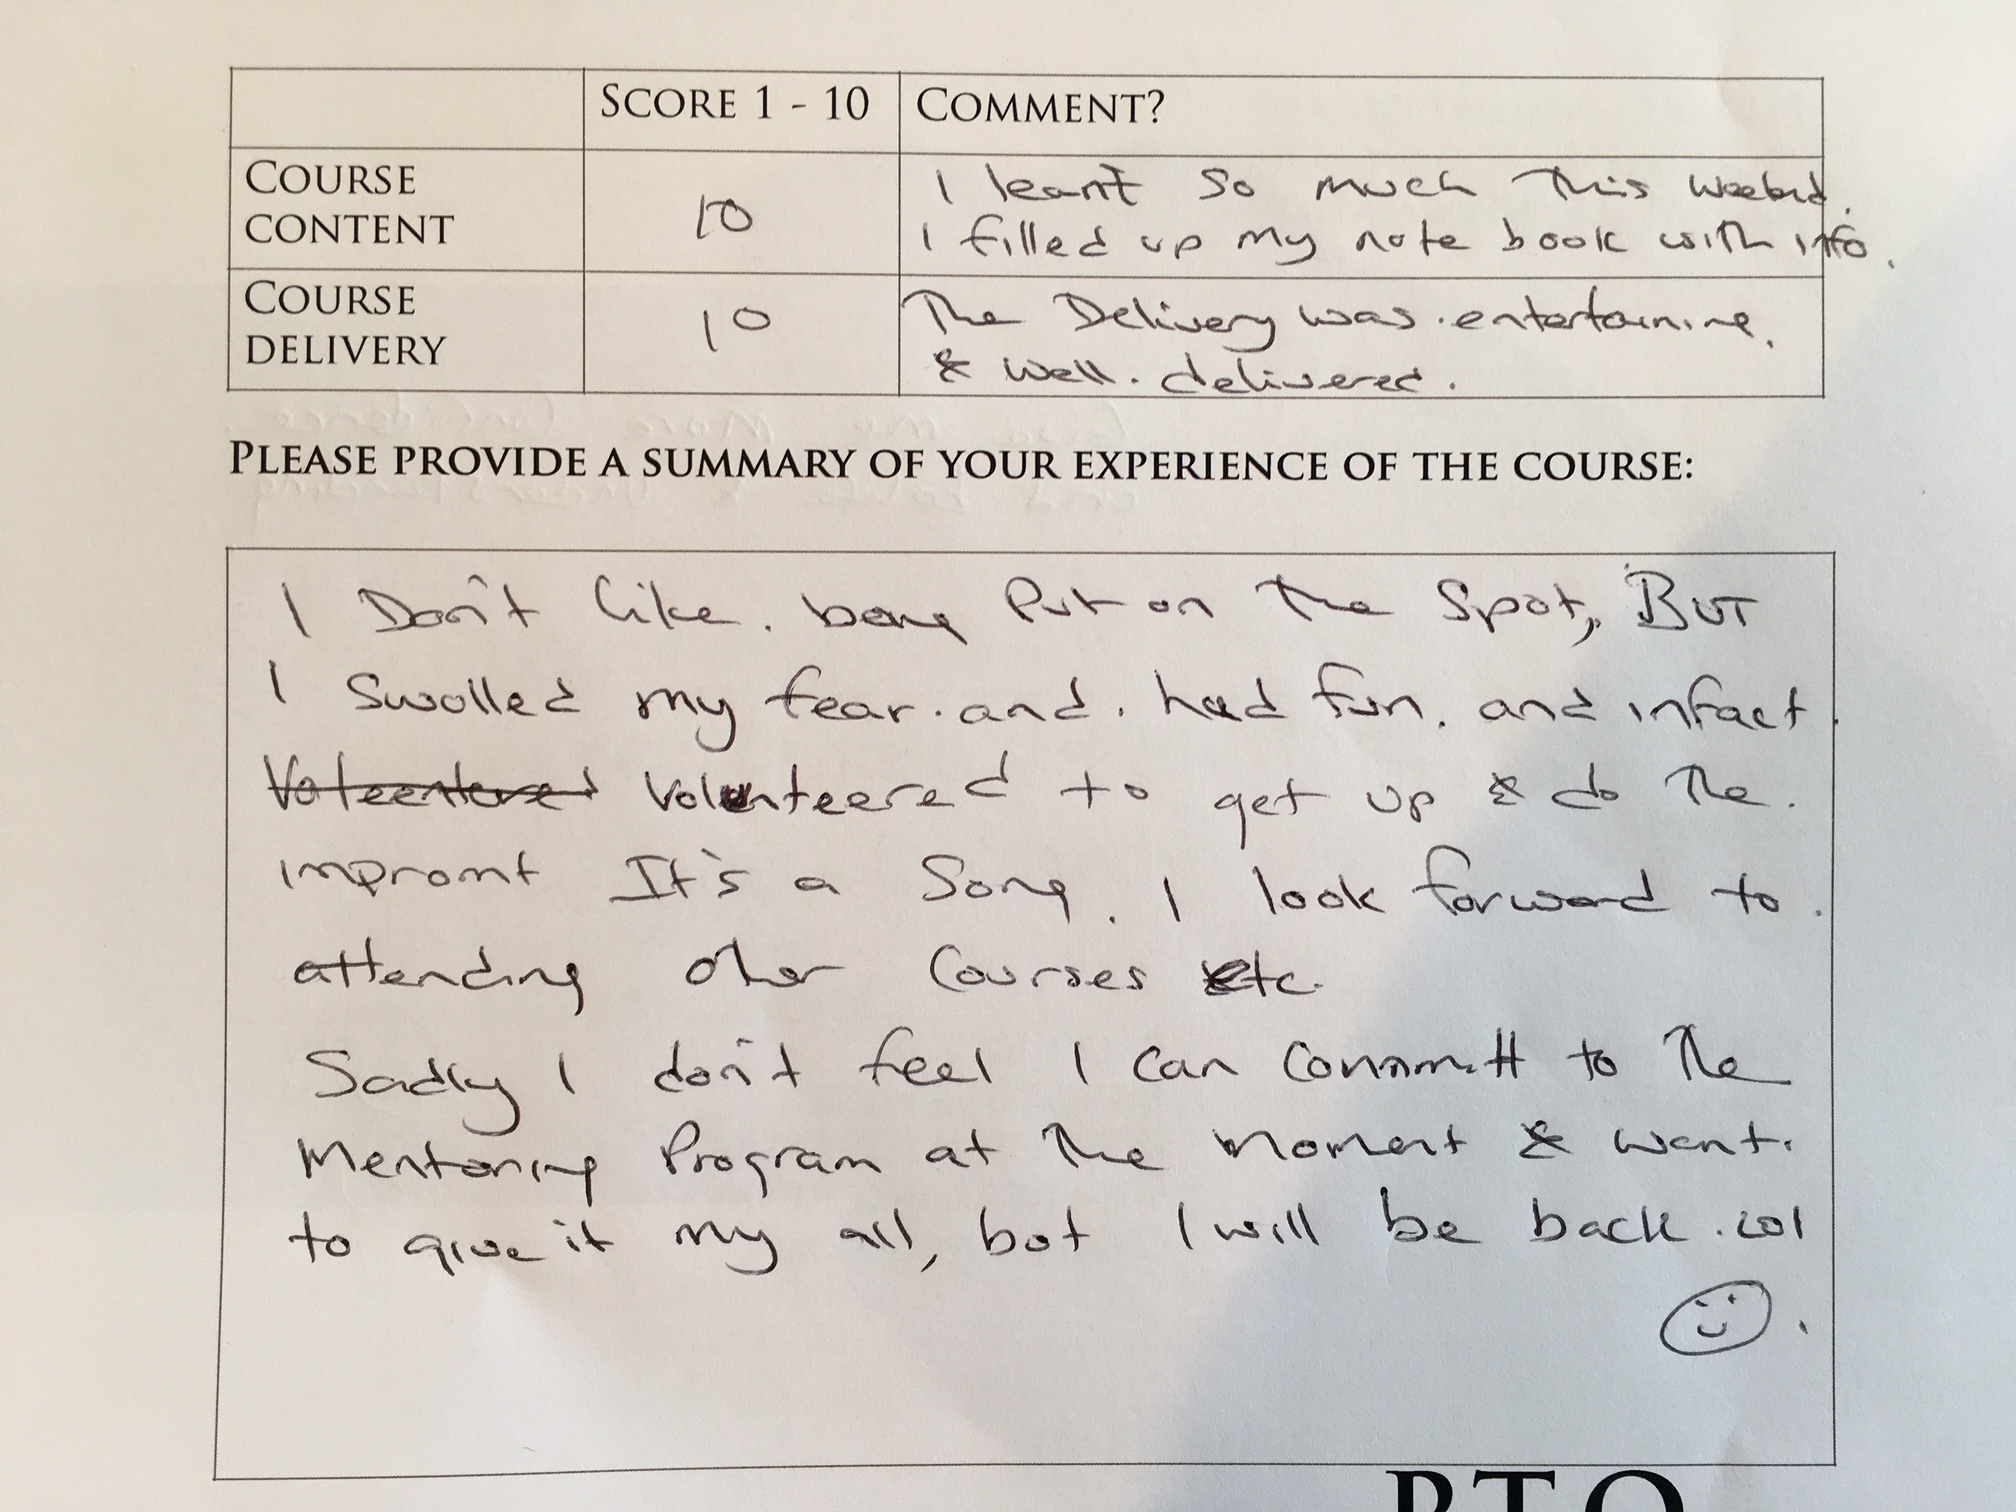 SCORE 1 - 10 COMMENT?
COURSE CONTENT 10 I learnt so much This weekend.
I filled up my note book with info.
COURSE DELIVERY 10 The Delivery was entertaining.
& well. delivered.
PLEASE PROVIDE A SUMMARY OF YOUR EXPERIENCE OF THE COURSE:
I Don't like. being Put on The Spot, BUT
I Swolled my fear. and. had fun. and infact.
Voteentered Volunteered to get up & do The.
impromt It's a Song. I look forward to.
attending other Courses etc.
Sadly I don't feel I can Committ to The
Mentoring Program at The moment & want.
to give it my all, but I will be back. lol
PTO